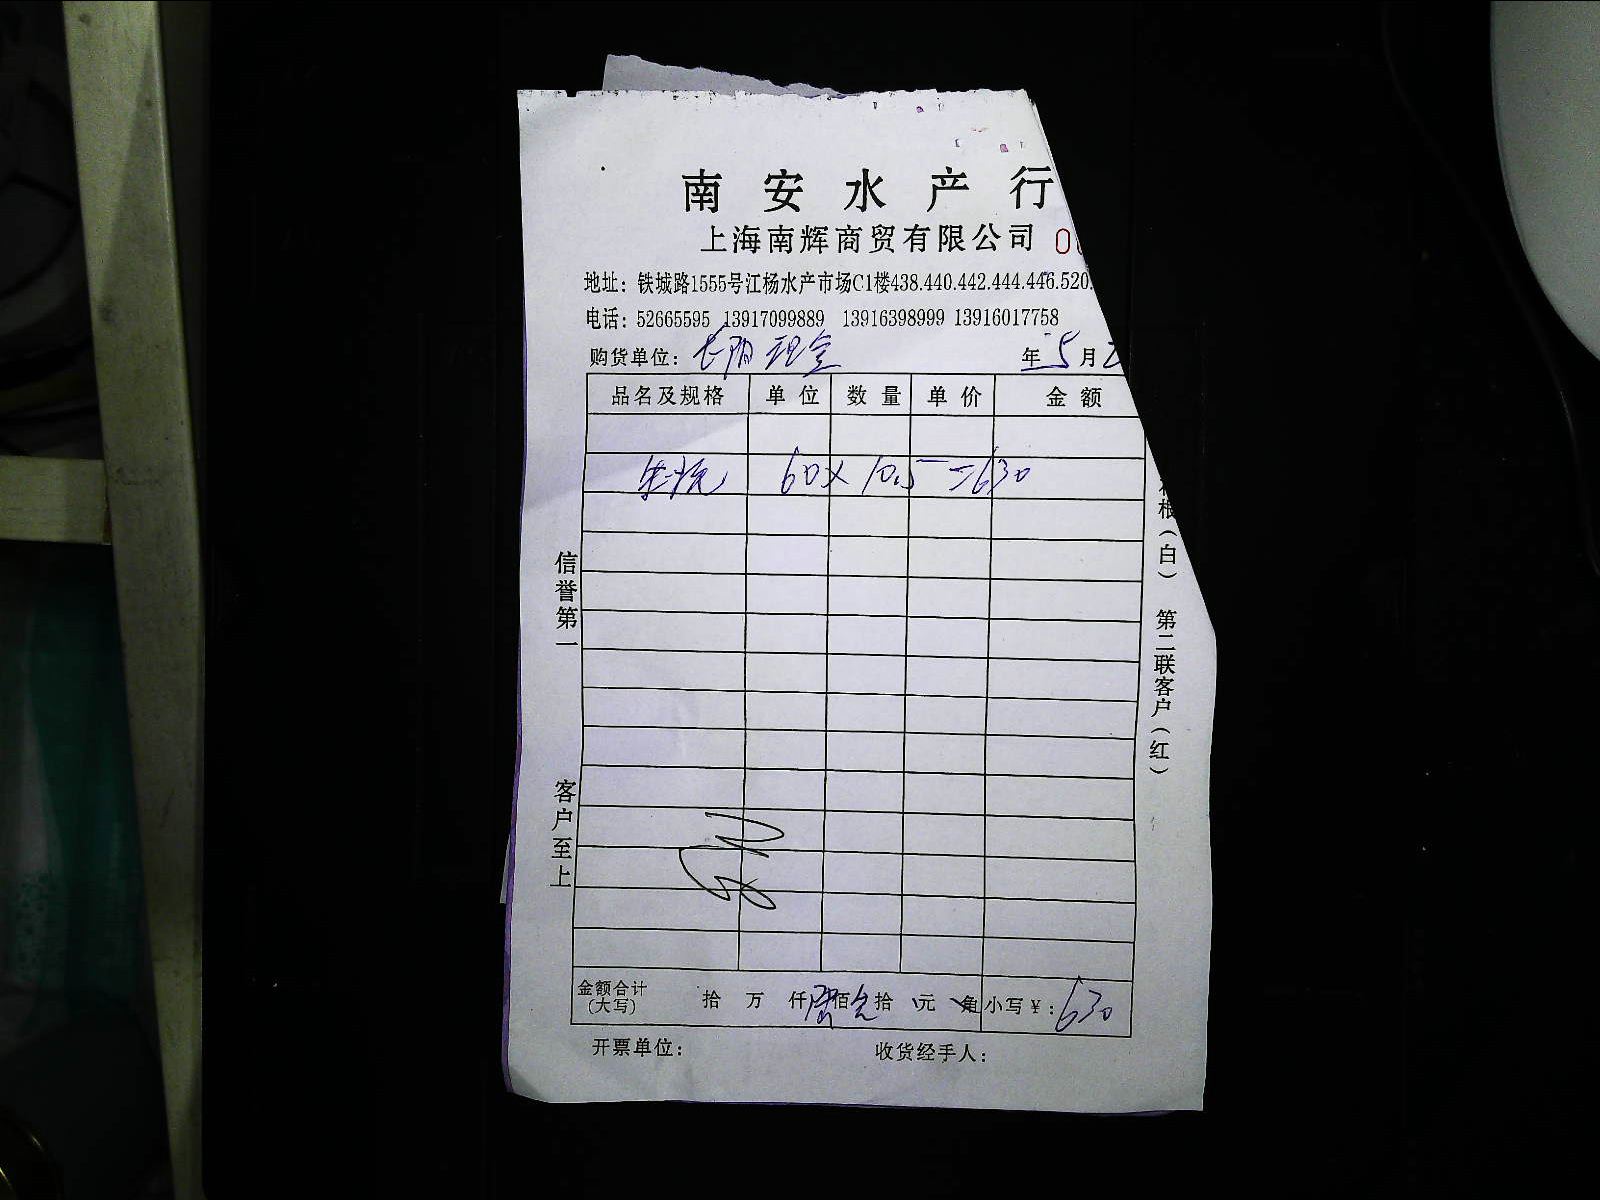 南安水产行
上海南辉商贸有限公司 0
地址：铁城路1555号江杨水产市场C1楼438.440.442.444.446.520.
电话：52665595 13917099889 13916398999 13916017758
购货单位： 年 5 月 2
品名及规格 单位 数量 单价 金额
60 x 10.5 = 630
信誉第一
客户至上
根（白） 第二联客户（红）
金额合计（大写） 拾 万 仟 陆 佰 叁 拾 元 角 小写￥：630
开票单位： 收货经手人：